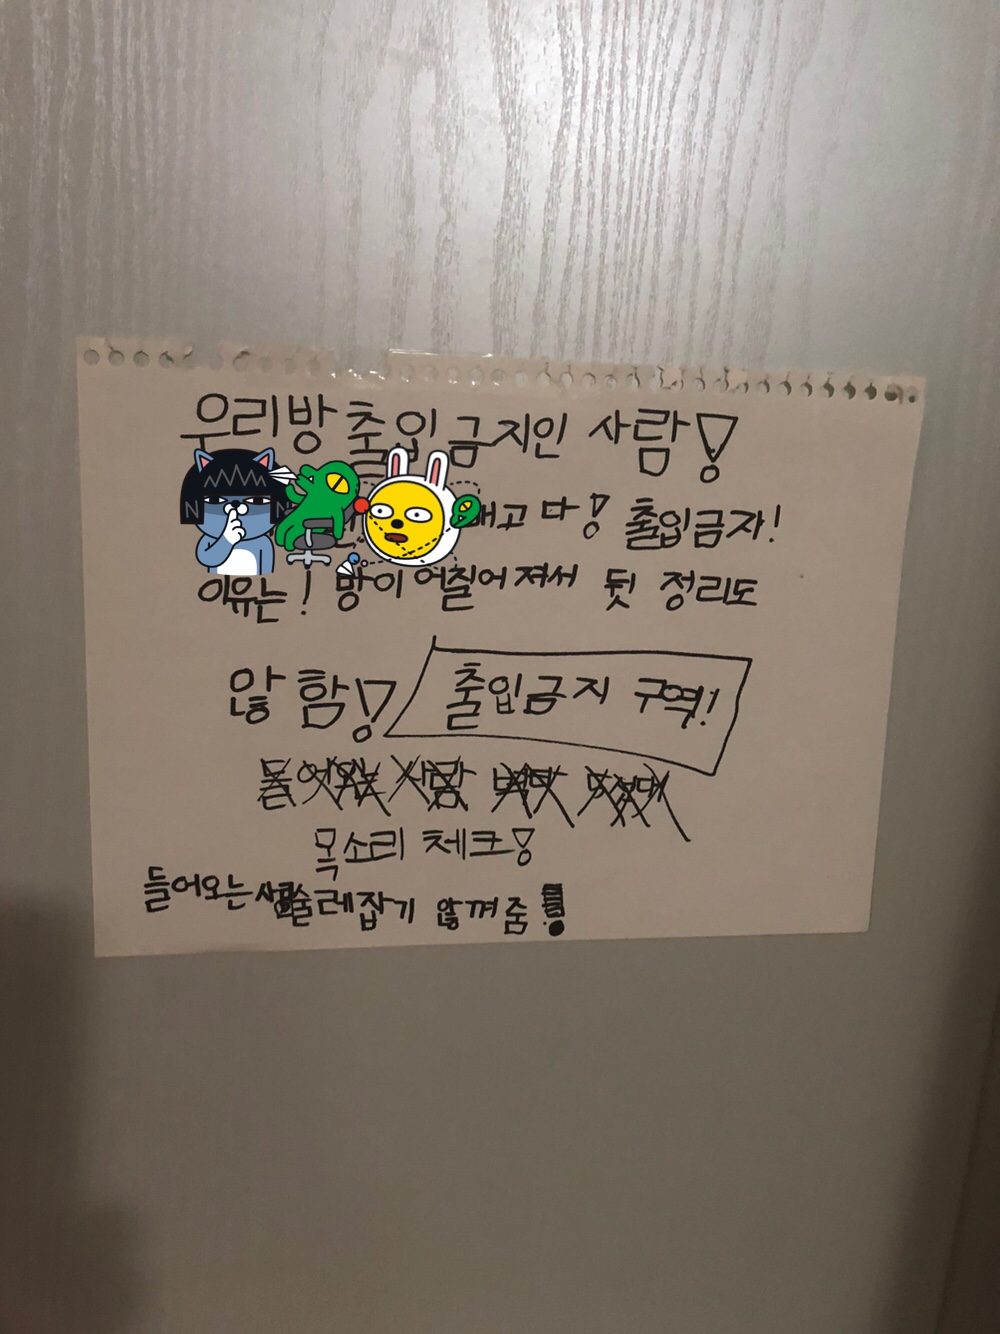 우리방 출입 금지인 사람!
빼고 다! 출입금자!
이유는! 방이 어질어져서 뒷 정리도
않함! 출입금지 구역!
목소리 체크!
들어오는 사람 술레잡기 않껴줌!